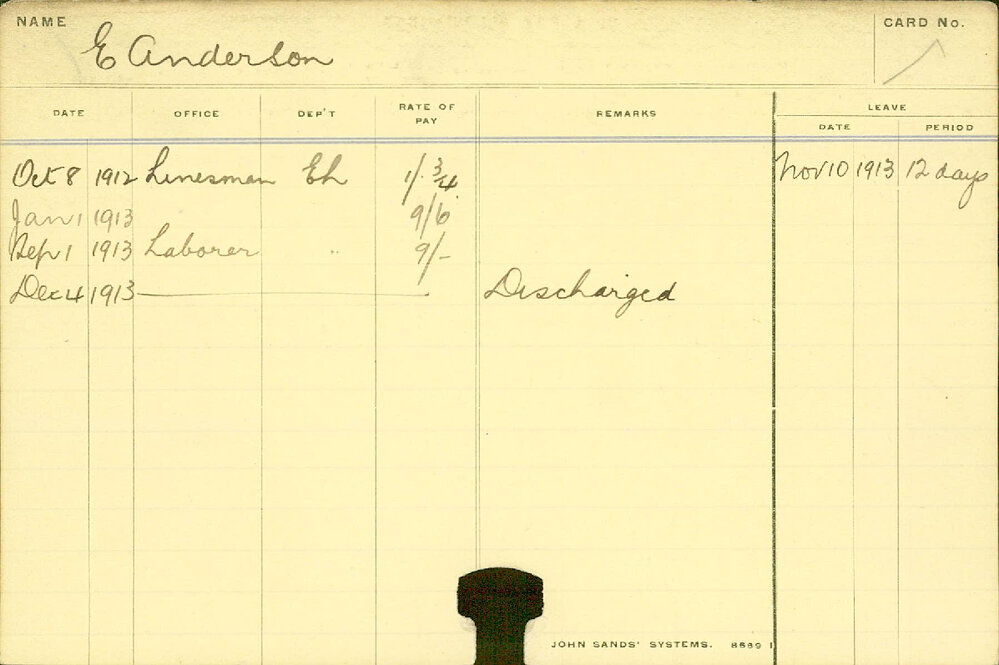 NAME
E Anderson
CARD No.
DATE OFFICE DEP'T RATE OF PAY REMARKS LEAVE
DATE PERIOD
Oct 8 1912 Linesman Eh 1/. 3/4 Nov 10 1913 12 days
Jan 1 1913 9/6
Sep 1 1913 Laborer " 9/-
Dec 4 1913 Discharged
JOHN SANDS' SYSTEMS.